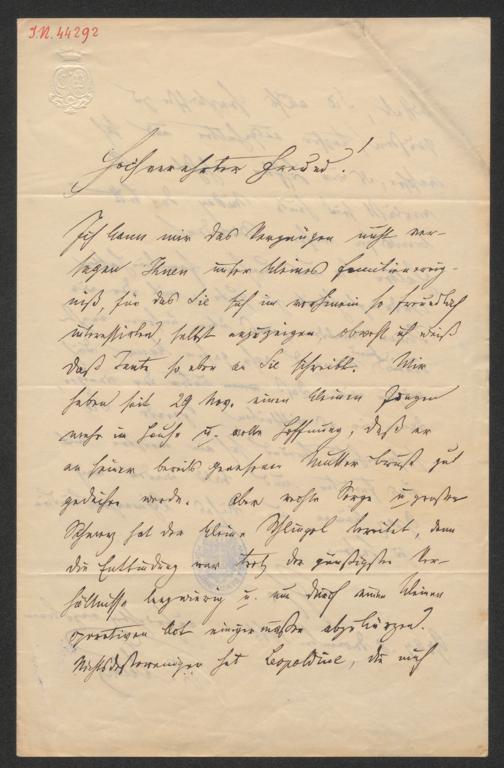 I.N. 44292
Hochverehrter Freund!
Ich kann mir das Vergnügen nicht ver-
sagen Ihnen unser kleines Familienereig-
niß, für das Sie sich im vorhinein so freundlich
interessirten, selbst anzuzeigen, obwohl ich weiß
daß Tante so eben an Sie schreibt. Wir
haben seit 29 Nov. einen kleinen Jungen
mehr im Hause u. volle Hoffnung, daß er
an seiner bereits genesenen Mutter Brust gut
gedeihen werde. Aber rechte Sorge u großen
Schmerz hat der kleine Schlingel bereitet, denn
die Entbindung war trotz der günstigsten Ver-
hältnisse langwierig u. nur durch einen kleinen
operativen Akt einigermaßen abgekürzen.
Nichtsdestoweniger hat Leopoldine, die mich